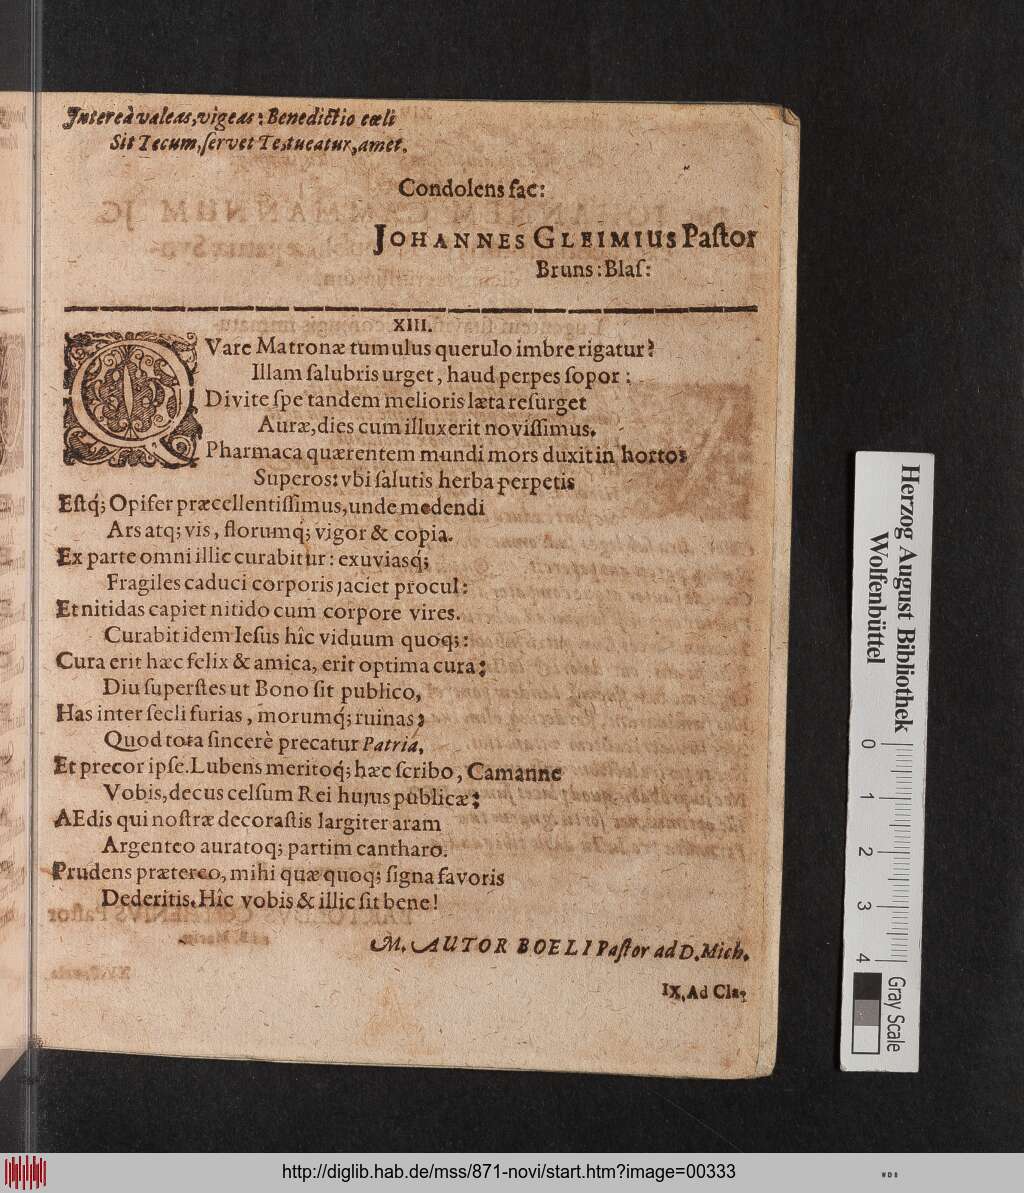 Intereà valeas, vigeas: Benedictio cœli
Sit Tecum, ſervet Te, tueatur, amet.
Condolens fac:
JOHANNES GLEIMIUS Paſtor
Bruns: Blaſ:
XIII.
QVare Matronæ tumulus querulo imbre rigatur?
Illam ſalubris urget, haud perpes ſopor:
Divite ſpe tandem melioris læta reſurget
Auræ, dies cum illuxerit noviſſimus.
Pharmaca quærentem mundi mors duxit in hortos
Superos: vbi ſalutis herba perpetis
Eſtq́; Opifer præcellentiſſimus, unde medendi
Ars atq; vis, florumq́; vigor & copia.
Ex parte omni illic curabitur: exuviasq́;
Fragiles caduci corporis jaciet procul:
Et nitidas capiet nitido cum corpore vires.
Curabit idem Ieſus hîc viduum quoq;:
Cura erit hæc felix & amica, erit optima cura:
Diu ſuperſtes ut Bono ſit publico,
Has inter ſecli furias, morumq́; ruinas;
Quod tota ſincerè precatur Patria.
Et precor ipſe. Lubens meritoq́; hæc ſcribo, Camanne
Vobis, decus celſum Rei hujus publicæ:
AEdis qui noſtræ decoraſtis largiter aram
Argenteo auratoq; partim cantharo.
Prudens prætereo, mihi quæ quoq; ſigna favoris
Dederitis. Hîc vobis & illic ſit bene!
M. AUTOR BOELI Paſtor ad D. Mich.
IX, Ad Cla-
Herzog August Bibliothek
Wolfenbüttel
0 1 2 3 4
Gray Scale
http://diglib.hab.de/mss/871-novi/start.htm?image=00333
WDB